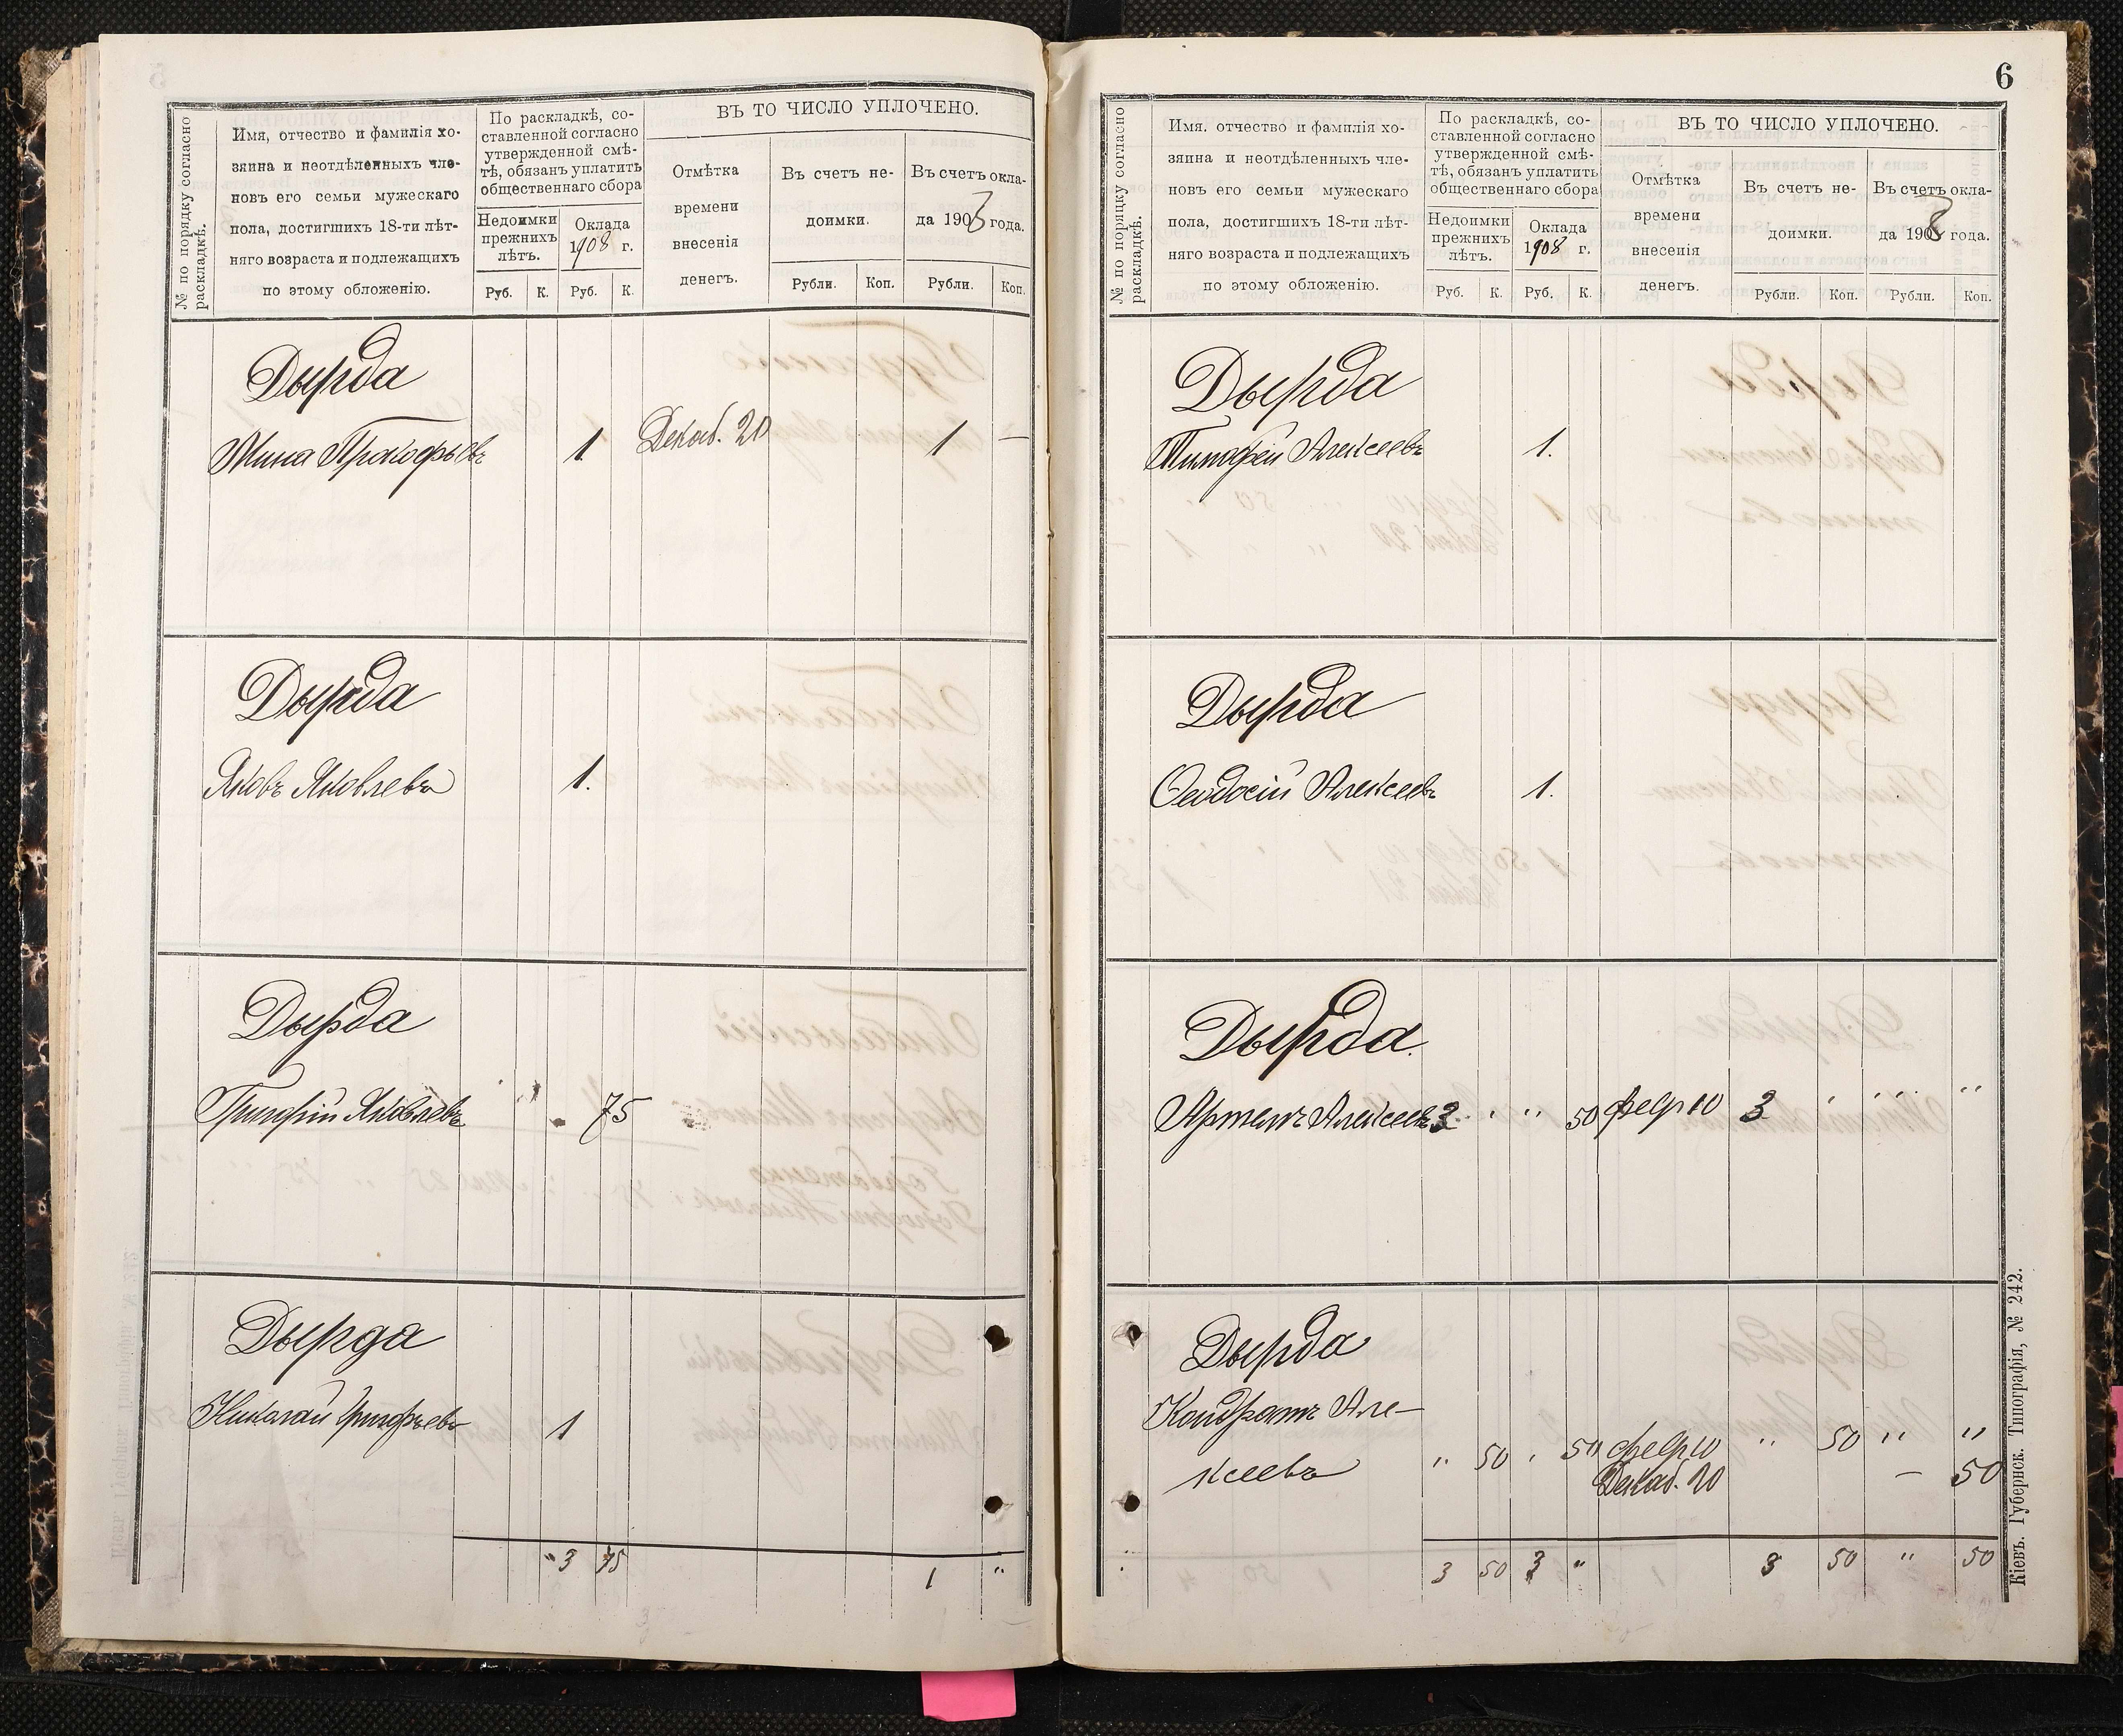 № по порядку согласно раскладкѣ.
Имя, отчество и фамилія хо-
зяина и неотдѣленныхъ чле-
новъ его семьи мужескаго
пола, достигшихъ 18-ти лѣт-
няго возраста и подлежащихъ
по этому обложенію.
По раскладкѣ, со-
ставленной согласно
утвержденной смѣ-
тѣ, обязанъ уплатить
общественнаго сбора
Недоимки
прежнихъ
лѣтъ.
Оклада
1908 г.
Руб. К. Руб. К.
ВЪ ТО ЧИСЛО УПЛОЧЕНО.
Отмѣтка
времени
внесенія
денегъ.
Въ счетъ не-
доимки.
Въ счетъ окла-
да 1908 года.
Рубли. Коп. Рубли. Коп.
Дырда
Мина Прокофьевъ 1. Декаб. 20 1 —
Дырда
Яковъ Яковлевъ 1.
Дырда
Григорій Яковлевъ 75
Дырда
Николай Григорьевъ 1
" 3 75 1 "
6
№ по порядку согласно раскладкѣ.
Имя, отчество и фамилія хо-
зяина и неотдѣленныхъ чле-
новъ его семьи мужескаго
пола, достигшихъ 18-ти лѣт-
няго возраста и подлежащихъ
по этому обложенію.
По раскладкѣ, со-
ставленной согласно
утвержденной смѣ-
тѣ, обязанъ уплатить
общественнаго сбора
Недоимки
прежнихъ
лѣтъ.
Оклада
1908 г.
Руб. К. Руб. К.
ВЪ ТО ЧИСЛО УПЛОЧЕНО.
Отмѣтка
времени
внесенія
денегъ.
Въ счетъ не-
доимки.
Въ счетъ окла-
да 1908 года.
Рубли. Коп. Рубли. Коп.
Дырда
Тимофей Алексеевъ 1.
Дырда
Феодосій Алексеевъ 1.
Дырда.
Артемъ Алексеевъ 3 " " 50 февр 10 3 " " "
Дырда
Кондратъ Але-
ксеевъ " 50 " 50 февр 10 " 50 " "
Декаб. 20 — 50
3 50 3 " 3 50 " 50
Кіевъ. Губернск. Типографія, № 242.